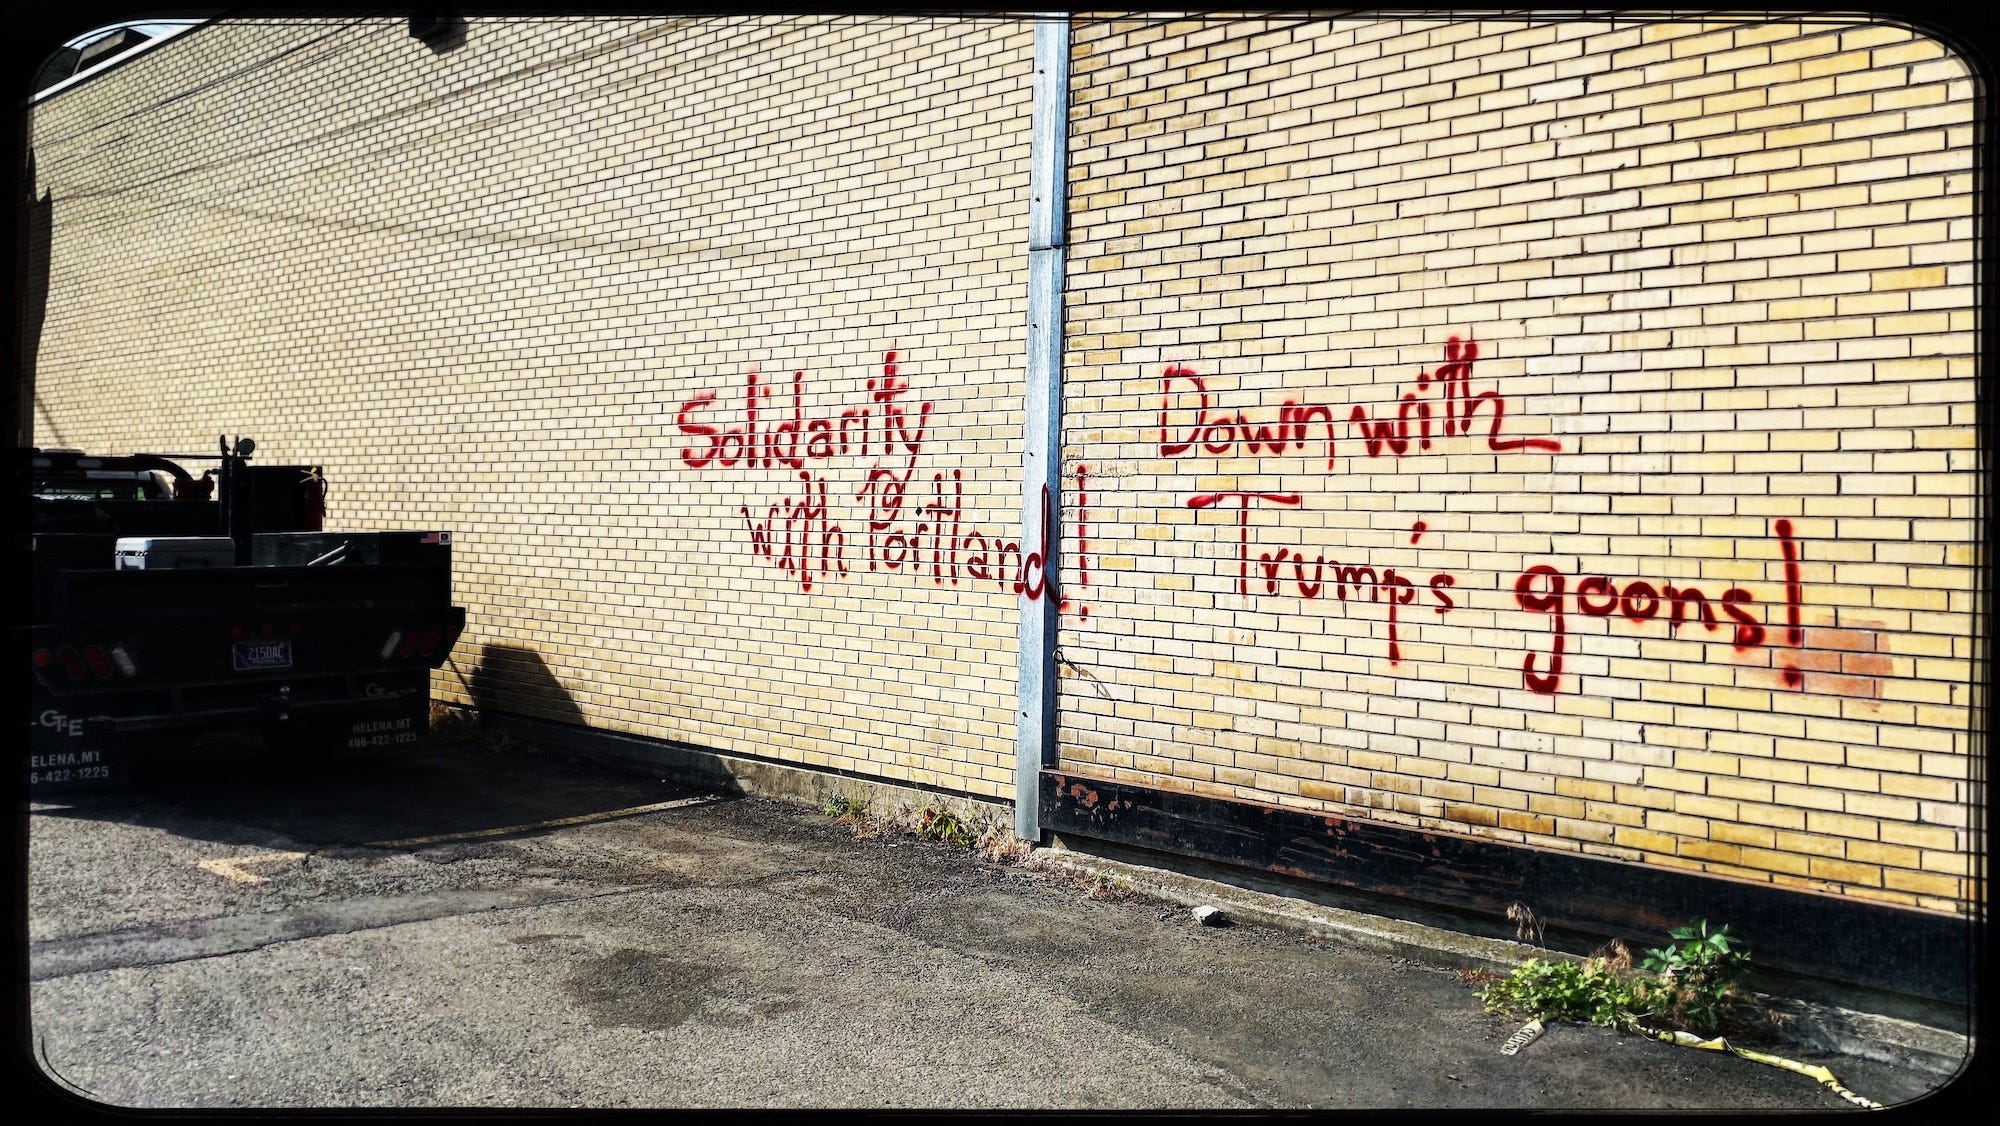 Solidarity
with Portland!
Down with
Trump's goons!
215DAC
GTE
HELENA, MT
406-422-1225
ELENA, MT
6-422-1225